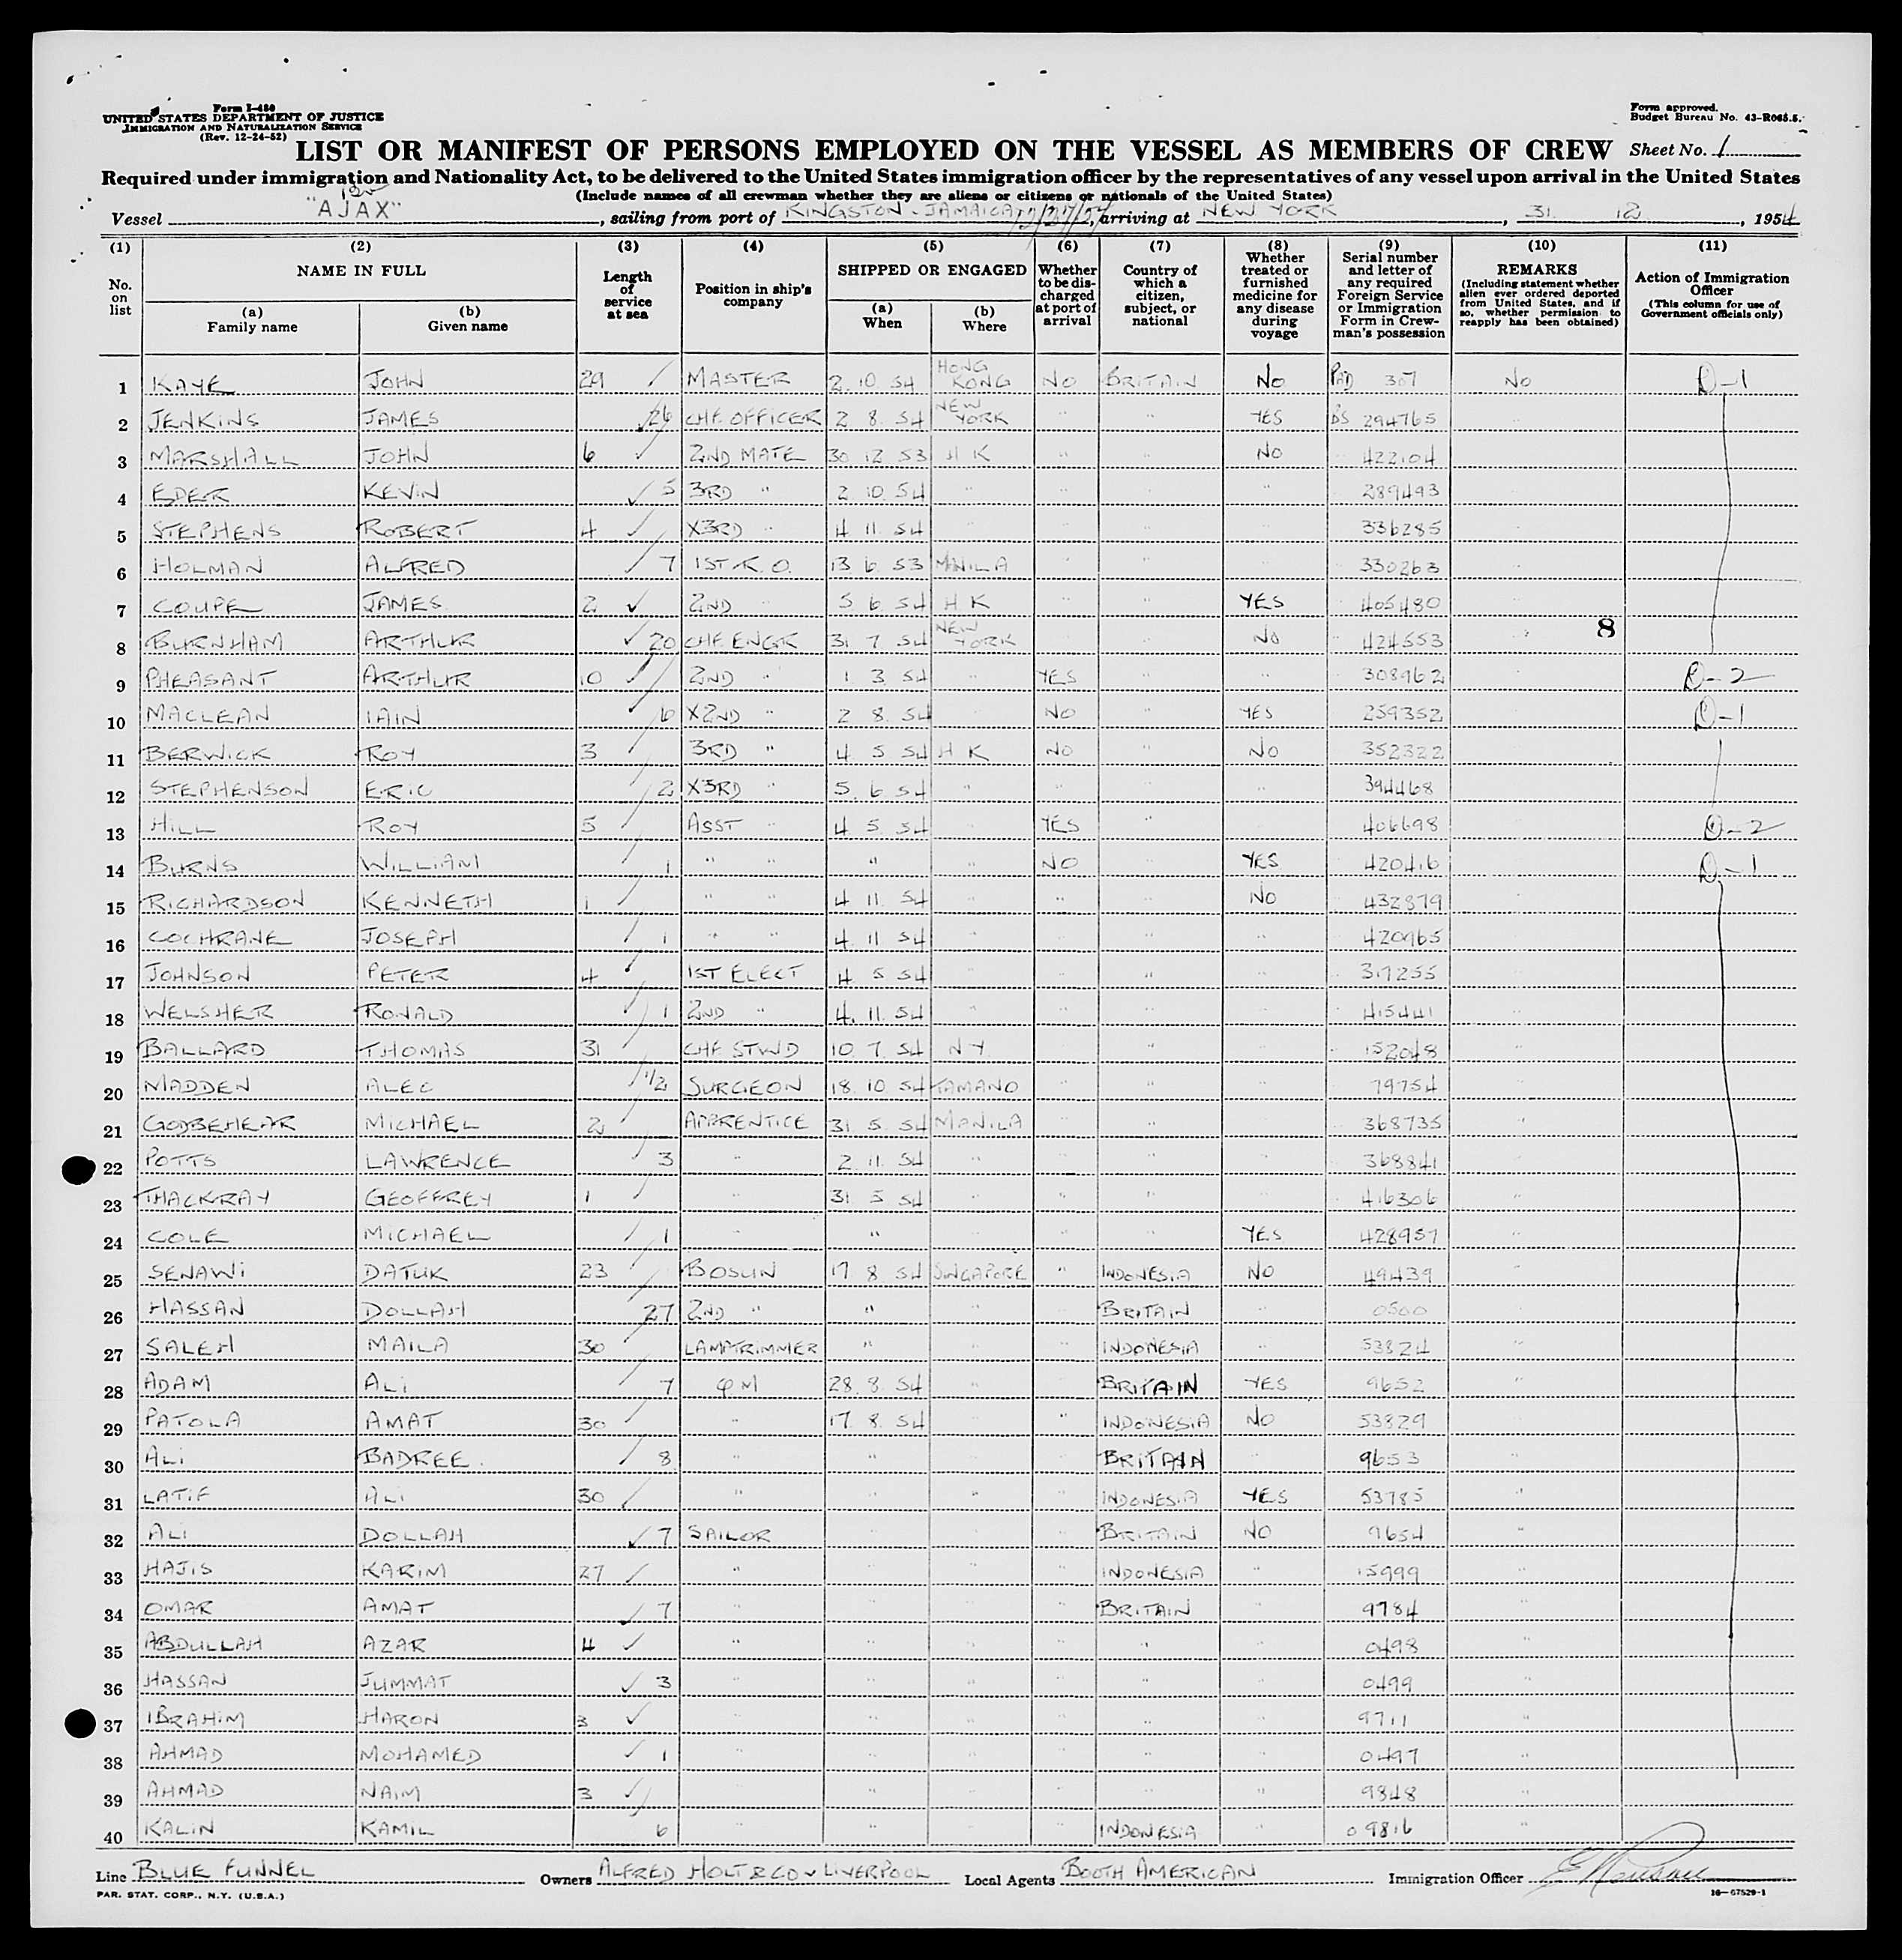 Form I-480
UNITED STATES DEPARTMENT OF JUSTICE
IMMIGRATION AND NATURALIZATION SERVICE
(Rev. 12-24-52)
Form approved.
Budget Bureau No. 43-R065.5.
LIST OR MANIFEST OF PERSONS EMPLOYED ON THE VESSEL AS MEMBERS OF CREW Sheet No. 1
Required under immigration and Nationality Act, to be delivered to the United States immigration officer by the representatives of any vessel upon arrival in the United States
(Include names of all crewman whether they are aliens or citizens or nationals of the United States)
Vessel "AJAX", sailing from port of KINGSTON. JAMAICA, arriving at NEW YORK, 31 12, 1954
(1) (2) (3) (4) (5) (6) (7) (8) (9) (10) (11)
No. on list
NAME IN FULL
(a) Family name
(b) Given name
Length of service at sea
Position in ship's company
SHIPPED OR ENGAGED
(a) When
(b) Where
Whether to be discharged at port of arrival
Country of which a citizen, subject, or national
Whether treated or furnished medicine for any disease during voyage
Serial number and letter of any required Foreign Service or Immigration Form in Crewman's possession
REMARKS
(Including statement whether alien ever ordered deported from United States, and if so, whether permission to reapply has been obtained)
Action of Immigration Officer
(This column for use of Government officials only)
1 KAYE JOHN 29 MASTER 2. 10. 54 HONG KONG NO BRITAIN NO 307 NO D-1
2 JENKINS JAMES 26 CHF. OFFICER 2 8. 54 NEW YORK " " YES BS 294765
3 MARSHALL JOHN 6 2ND MATE 30 12 53 H K " " NO 422104
4 EDER KEVIN 5 3RD " 2 10. 54 " " " " 289493
5 STEPHENS ROBERT 4 X3RD " 4 11. 54 " " " " 336285
6 HOLMAN ALFRED 7 1ST R. O. 13 6 53 MANILA " " " 330263
7 COUPE JAMES 2 2ND " 5 6. 54 H K " " YES 405480
8 BURNHAM ARTHUR 20 CHF. ENGR 31 7. 54 NEW YORK " " NO 424553 8
9 PHEASANT ARTHUR 10 2ND " 1 3. 54 " YES " " 308962 D-2
10 MACLEAN IAIN 6 X2ND " 2 8. 54 " NO " YES 259352 D-1
11 BERWICK ROY 3 3RD " 4 5 54 H K NO " NO 352322
12 STEPHENSON ERIC 2 X3RD " 5. 6. 54 " " " " 394468
13 HILL ROY 5 ASST " 4 5 54 " YES " " 406698 D-2
14 BURNS WILLIAM 1 " " " " NO " YES 420416 D-1
15 RICHARDSON KENNETH 1 " " 4 11. 54 " " " NO 432879
16 COCHRANE JOSEPH 1 " " 4. 11 54 " " " " 420965
17 JOHNSON PETER 4 1ST ELECT 4. 5 54 " " " " 317255
18 WELSHER RONALD 1 2ND " 4. 11. 54 " " " " 415441
19 BALLARD THOMAS 31 CHF. STWD 10 7. 54 N Y " " " 152048
20 MADDEN ALEC 1/2 SURGEON 18. 10. 54 TAMANO " " " 79754
21 GODBEHEAR MICHAEL 2 APPRENTICE 31 5. 54 MANILA " " " 368735
22 POTTS LAWRENCE 3 " 2. 11. 54 " " " " 368841
23 THACKRAY GEOFFREY 1 " 31 5 54 " " " " 416306
24 COLE MICHAEL 1 " " " " " YES 428957
25 SENAWI DATUK 23 BOSUN 17 8. 54 SINGAPORE " INDONESIA NO 49439
26 HASSAN DOLLAH 27 2ND " " " " BRITAIN " 0500
27 SALEH MAILA 30 LAMPTRIMMER " " " INDONESIA " 53824
28 ADAM ALI 7 QM 28. 8. 54 " " BRITAIN YES 9652
29 PATOLA AMAT 30 " 17 8. 54 " " INDONESIA NO 53829
30 ALI BADREE 8 " " " " BRITAIN " 9653
31 LATIF ALI 30 " " " " INDONESIA YES 53785
32 ALI DOLLAH 7 SAILOR " " " BRITAIN NO 9654
33 HAJIS KARIM 27 " " " " INDONESIA " 15999
34 OMAR AMAT 7 " " " " BRITAIN " 9784
35 ABDULLAH AZAR 4 " " " " " " 0498
36 HASSAN JUMMAT 3 " " " " " " 0499
37 IBRAHIM HARON 3 " " " " " " 9711
38 AHMAD MOHAMED 1 " " " " " " 0497
39 AHMAD NAIM 3 " " " " " " 9848
40 KALIN KAMIL 6 " " " " INDONESIA " 09816
Line BLUE FUNNEL Owners ALFRED HOLT & CO LIVERPOOL Local Agents BOOTH AMERICAN Immigration Officer
PAR. STAT. CORP., N.Y. (U.S.A.)
16—67529-1